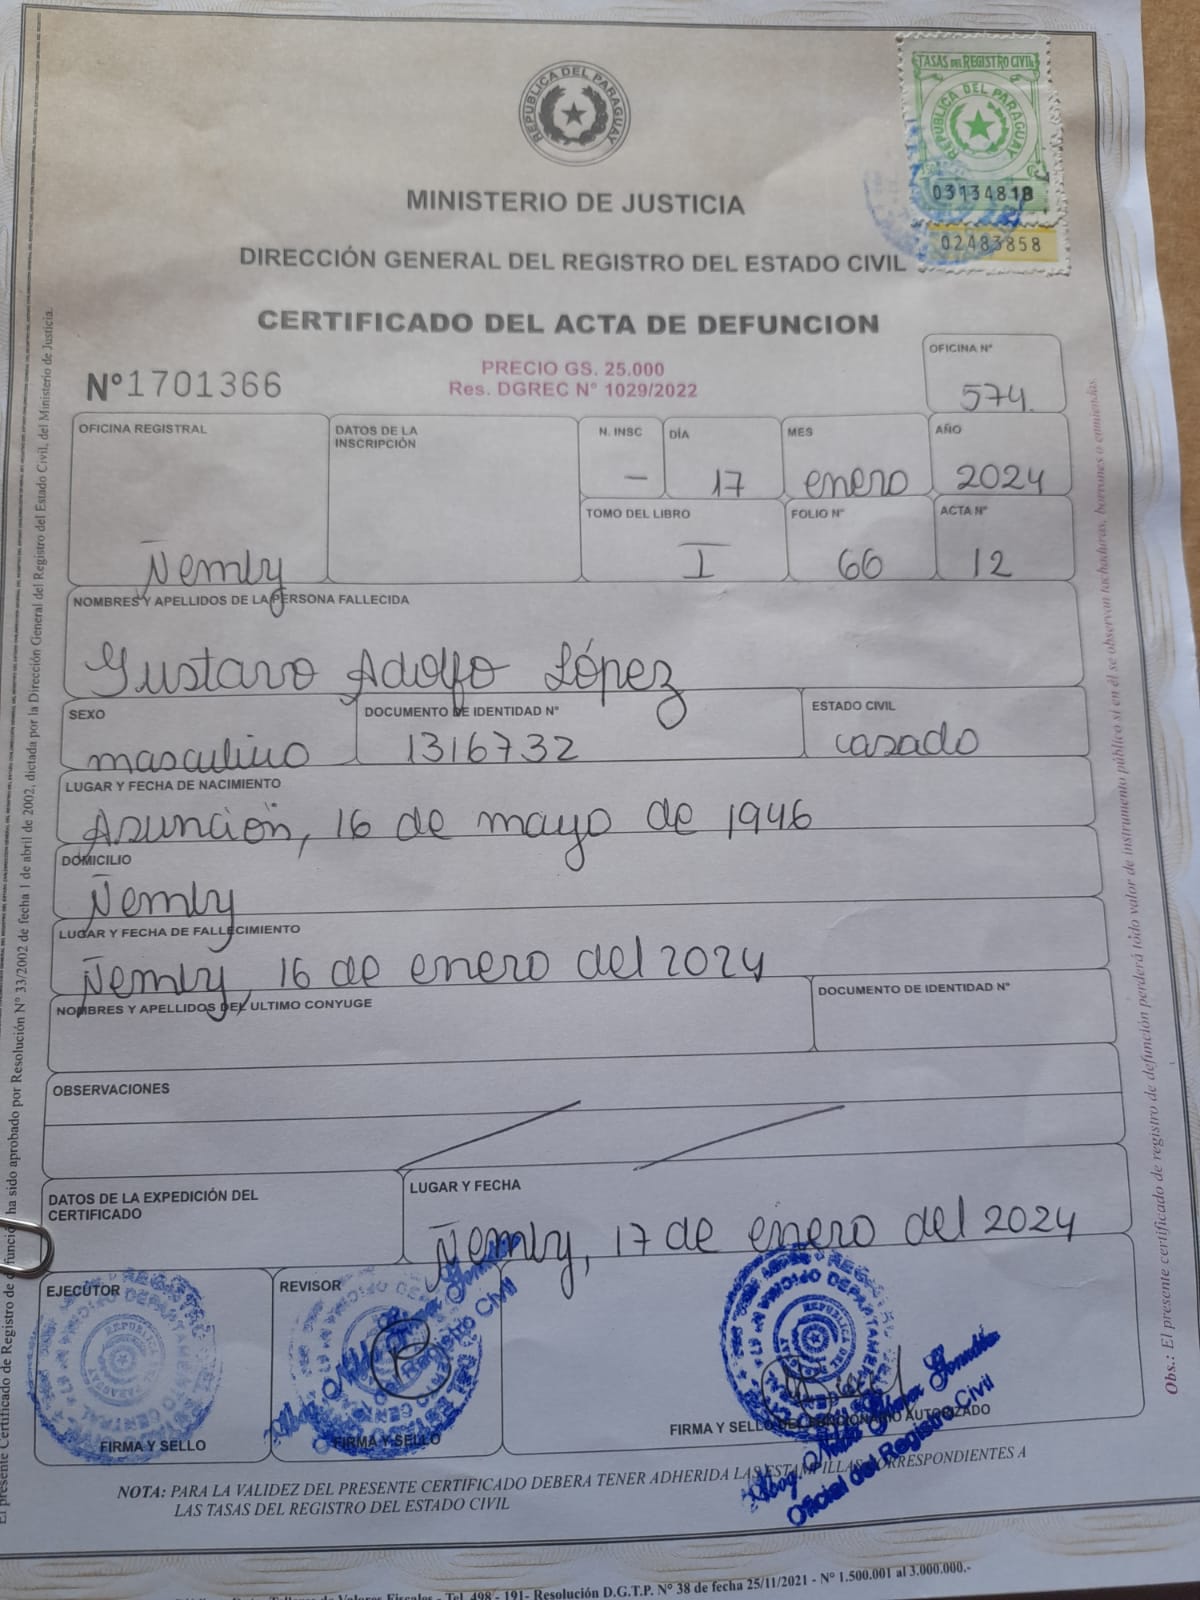 REPUBLICA DEL PARAGUAY
TASAS DEL REGISTRO CIVIL
REPUBLICA DEL PARAGUAY
03134818
02483858
MINISTERIO DE JUSTICIA
DIRECCIÓN GENERAL DEL REGISTRO DEL ESTADO CIVIL
CERTIFICADO DEL ACTA DE DEFUNCION
PRECIO GS. 25.000
Res. DGREC N° 1029/2022
N° 1701366
OFICINA N°
574.
OFICINA REGISTRAL
Ñemby
DATOS DE LA
INSCRIPCIÓN
N. INSC
-
DÍA
17
MES
enero
AÑO
2024
TOMO DEL LIBRO
I
FOLIO N°
66
ACTA N°
12
NOMBRES Y APELLIDOS DE LA PERSONA FALLECIDA
Gustavo Adolfo López
SEXO
masculino
DOCUMENTO DE IDENTIDAD N°
1316732
ESTADO CIVIL
casado
LUGAR Y FECHA DE NACIMIENTO
Asunción, 16 de mayo de 1946
DOMICILIO
Ñemby
LUGAR Y FECHA DE FALLECIMIENTO
Ñemby, 16 de enero del 2024
NOMBRES Y APELLIDOS DEL ULTIMO CONYUGE
DOCUMENTO DE IDENTIDAD N°
OBSERVACIONES
DATOS DE LA EXPEDICIÓN DEL
CERTIFICADO
LUGAR Y FECHA
Ñemby, 17 de enero del 2024
EJECUTOR
FIRMA Y SELLO
REVISOR
Registro Civil
FIRMA Y SELLO
FIRMA Y SELLO DEL FUNCIONARIO AUTORIZADO
Oficial del Registro Civil
NOTA: PARA LA VALIDEZ DEL PRESENTE CERTIFICADO DEBERA TENER ADHERIDA LAS ESTAMPILLAS CORRESPONDIENTES A
LAS TASAS DEL REGISTRO DEL ESTADO CIVIL
El presente Certificado de Registro de defunción ha sido aprobado por Resolución N° 33/2002 de fecha 1 de abril de 2002, dictada por la Dirección General del Registro del Estado Civil, del Ministerio de Justicia.
Obs.: El presente certificado de registro de defunción perderá todo valor de instrumento público si en él se observan tachaduras, borrones o enmiendas.
Valores Fiscales - Tel. 498 - 191- Resolución D.G.T.P. N° 38 de fecha 25/11/2021 - N° 1.500.001 al 3.000.000.-